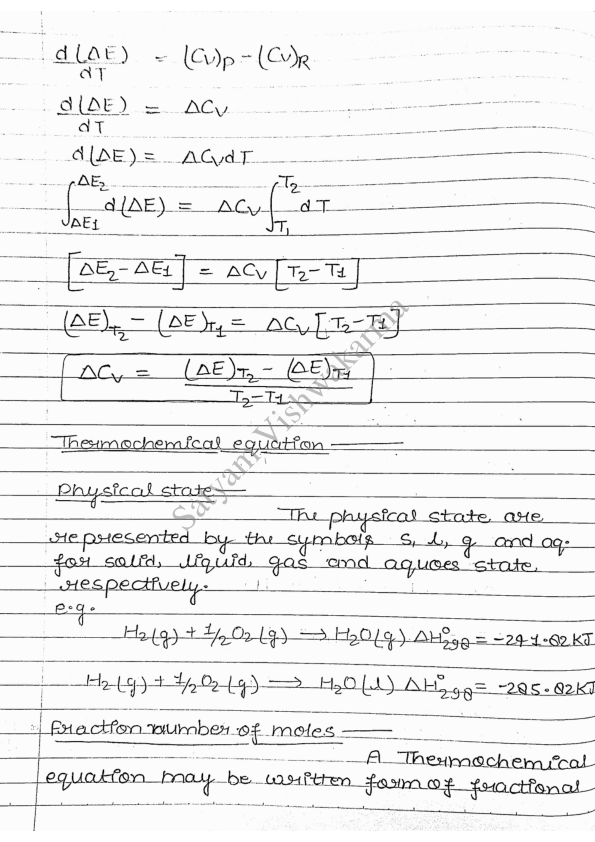 d(ΔE)/dT = (Cv)P - (Cv)R
d(ΔE)/dT = ΔCv
d(ΔE) = ΔCvdT
∫ΔE1^ΔE2 d(ΔE) = ΔCv ∫T1^T2 dT
[ΔE2-ΔE1] = ΔCv [T2-T1]
(ΔE)T2 - (ΔE)T1 = ΔCv [T2-T1]
ΔCv = (ΔE)T2 - (ΔE)T1 / T2-T1
Satyam Vishwakarma
Thermochemical equation —
Physical state —
The physical state are
represented by the symbols s, l, g and aq.
for solid, liquid, gas and aquoes state,
respectively.
e.g.
H2(g) + 1/2O2(g) → H2O(g) ΔH°298 = -241.82KJ
H2(g) + 1/2O2(g) → H2O(l) ΔH°298 = -285.82KJ
Fraction number of moles —
A Thermochemical
equation may be written form of fractional